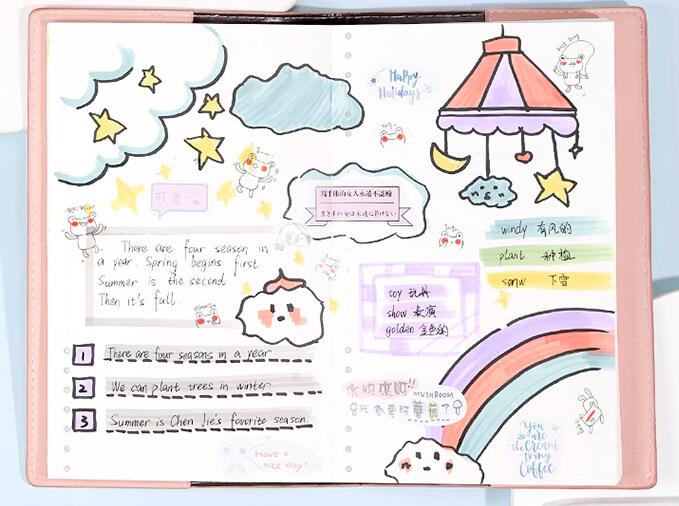 Happy
Holidays
可愛
寫手帳的女人永遠不認輸
There are four season in
a year. Spring begins first
Summer is the second
Then it's full.
1 There are four seasons in a year
2 We can plant trees in winter
3 Summer is Chen Jie's favorite season.
Have a
nice day!
windy 有风的
plant 种植
sonw 下雪
toy 玩具
show 表演
golden 金色的
MUSHROOM
You
are
the Cream
to my
Coffee